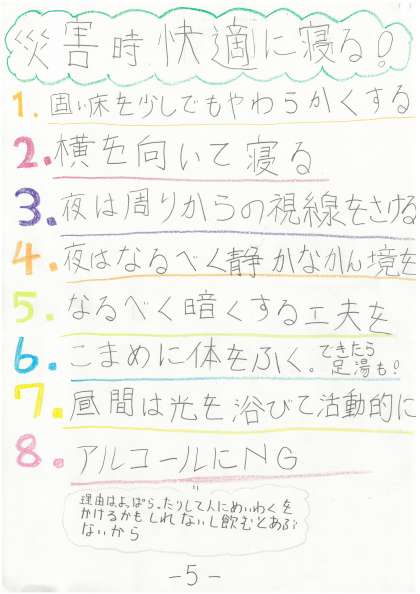 災害時快適に寝る!
1. 固い床を少しでもやわらかくする
2. 横を向いて寝る
3. 夜は周りからの視線をさける
4. 夜はなるべく静かなかん境を
5. なるべく暗くする工夫を
6. こまめに体をふく。できたら足湯も!
7. 昼間は光を浴びて活動的に
8. アルコールにNG
理由はよっぱらったりして人にめいわくを
かけるかもしれないし飲むとあぶ
ないから
-5-